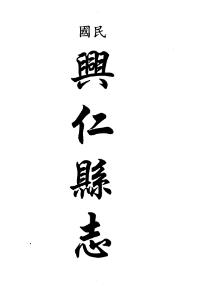 民國
興仁縣志